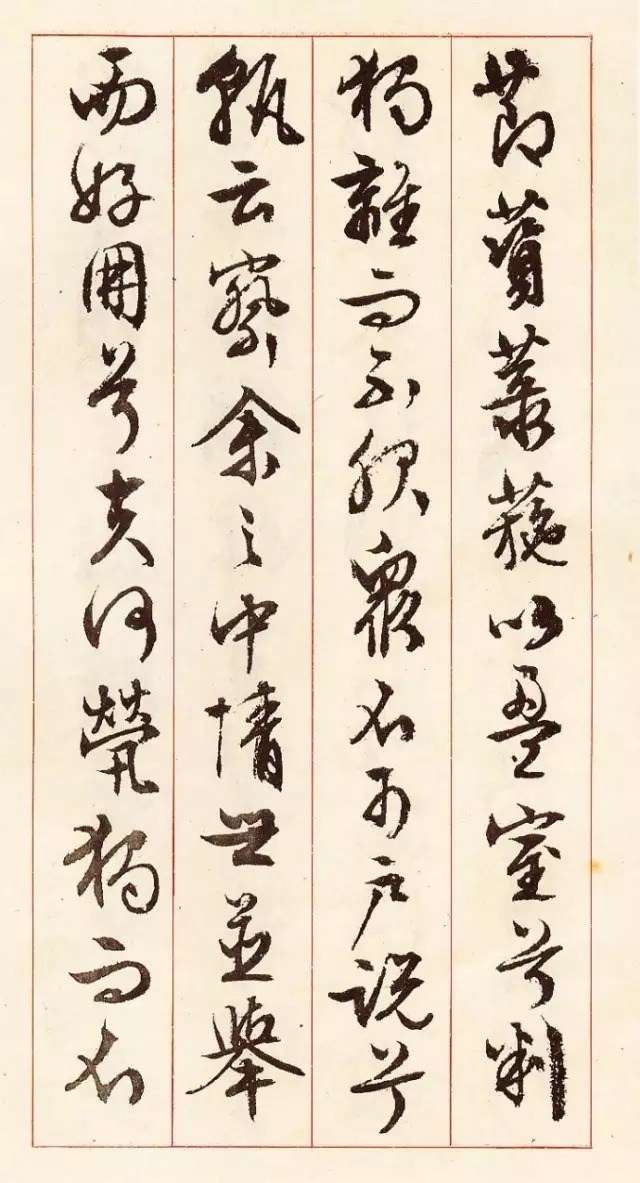 節薋菉葹以盈室兮判
獨離而不服衆不可戶說兮
孰云察余之中情世並舉
而好朋兮夫何煢獨而不